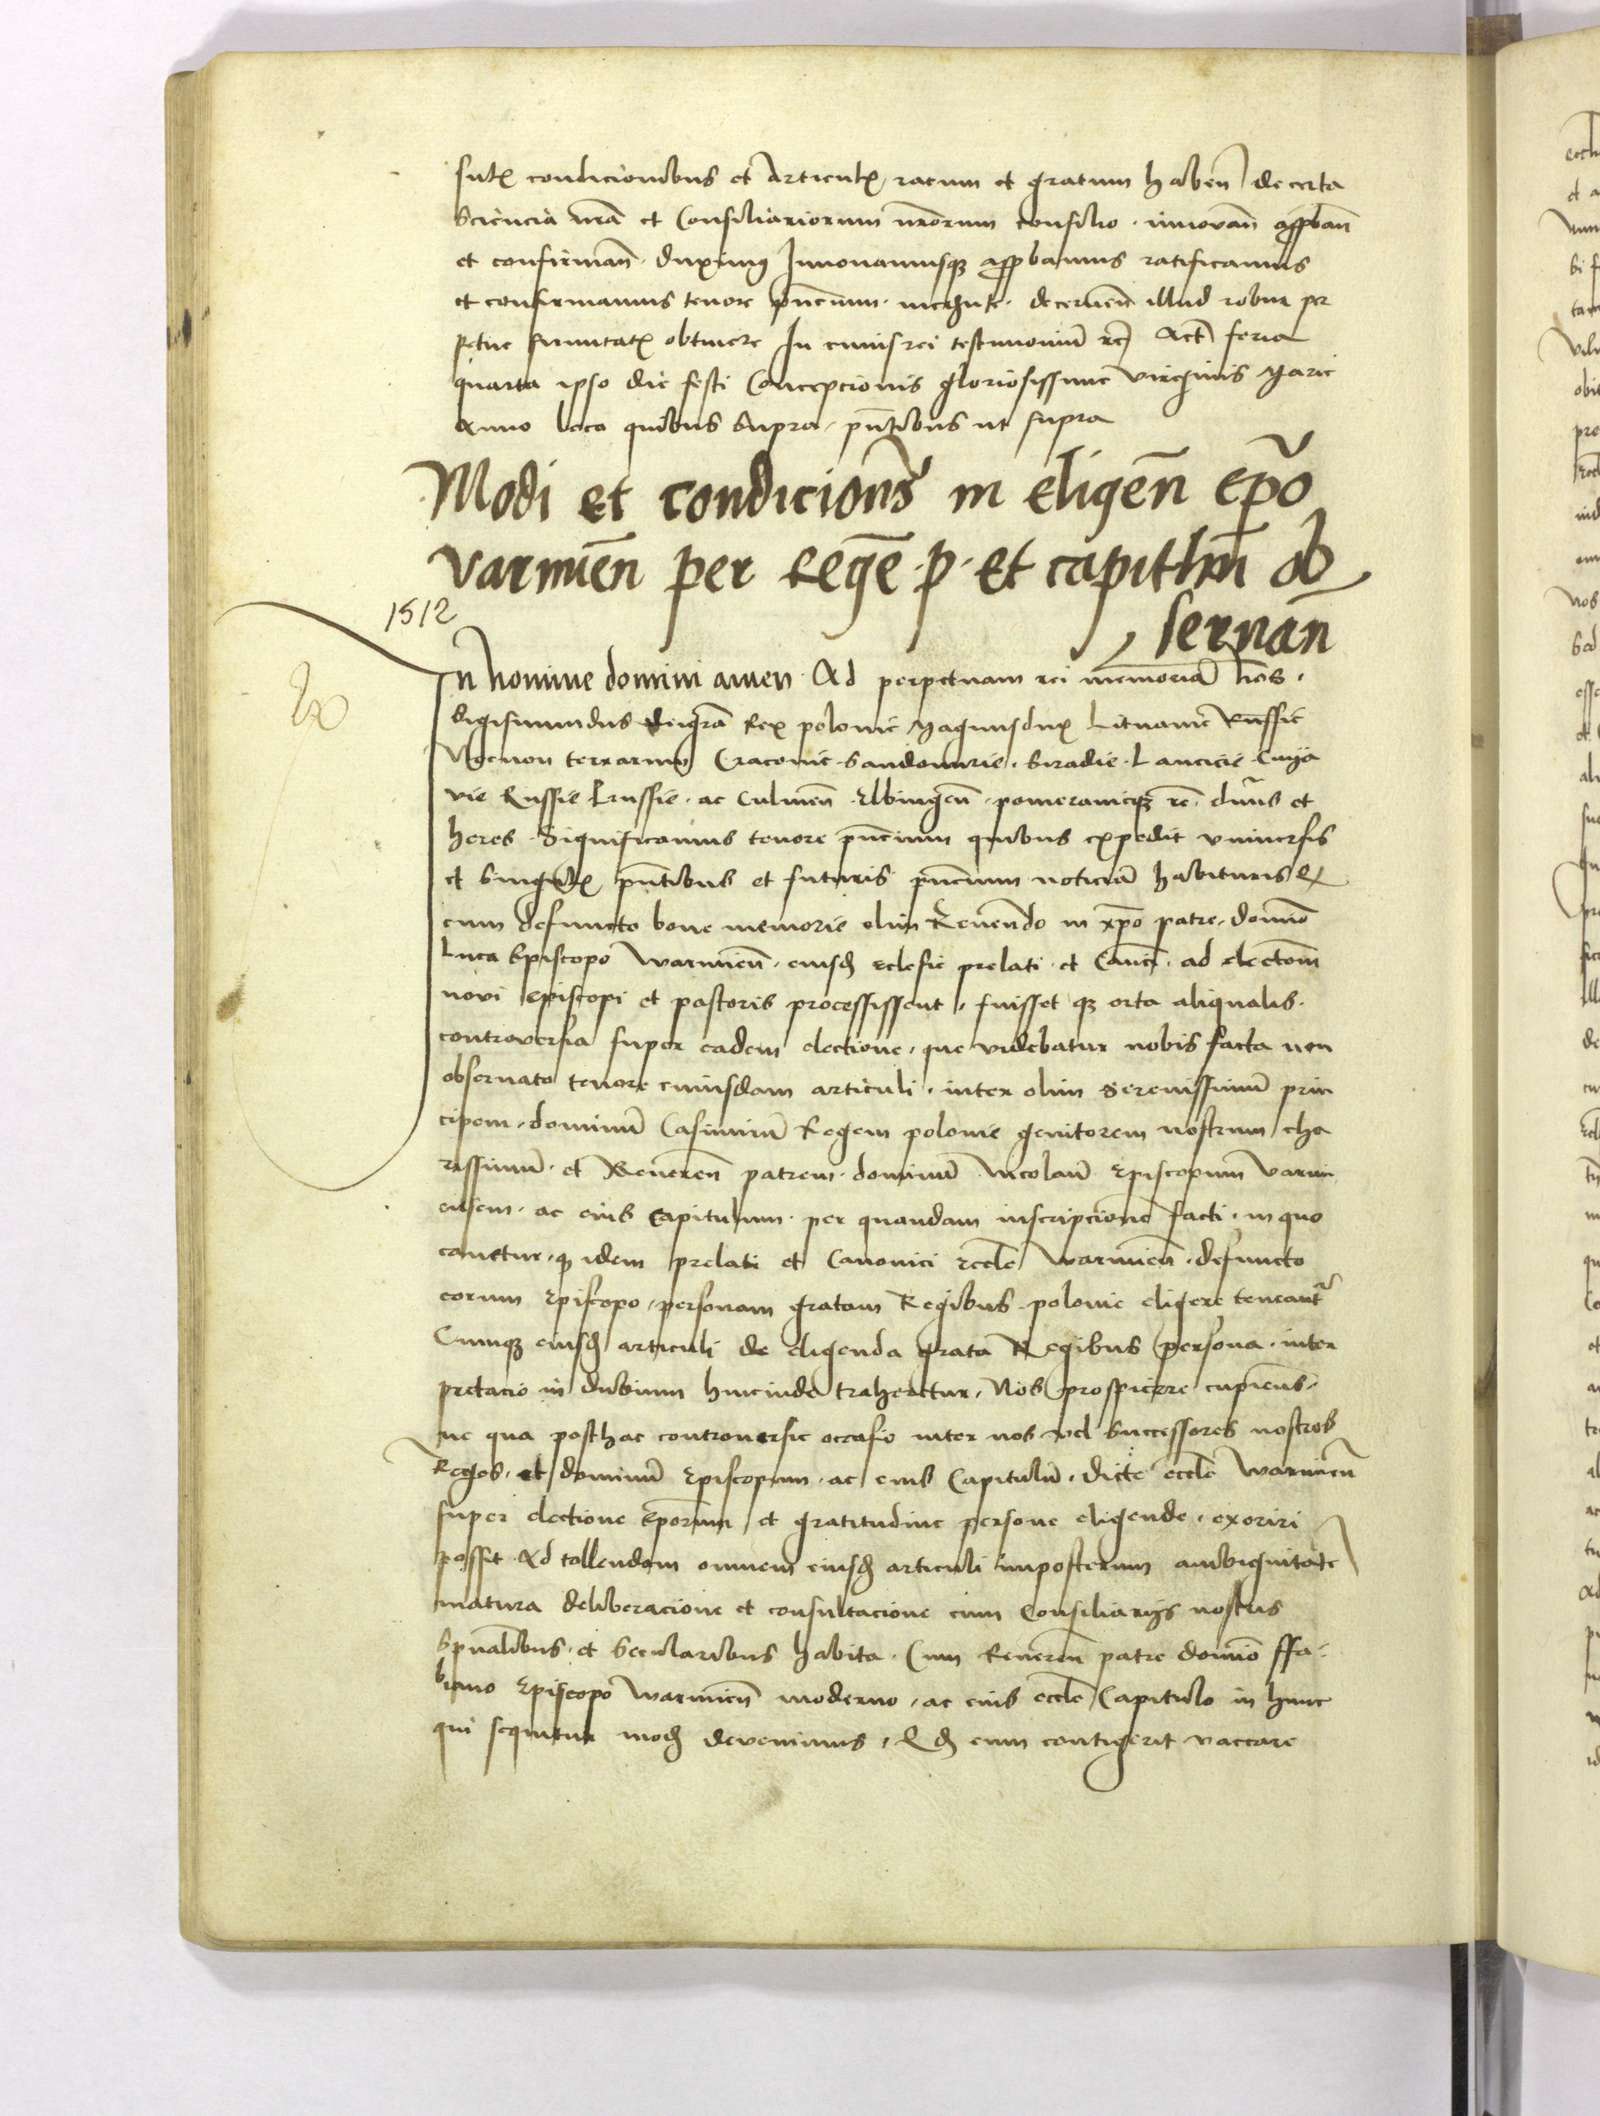 condicionibus et Articulis ratum et gratum haben̄ de certa
Sciencia nr̄a et Consiliariorum nr̄orum consilio · innovan̄ approban̄
et confirman̄ · duximus Innovamusq; approbamus ratificamus
et confirmamus tenore pn̄cium · decernen̄ illud robur per
petue firmitatis obtinere In cuius rei testimoniū Act̄ feria
quarta ipso die festi Concepcionis gloriosissime virginis Marie
Anno loco quibus supra, pn̄tibus ut supra
Modi et condicion̄s in eligen̄ ep̄o
varmien̄ per Regē · p · et capitlm̄ ob
servan̄
1512
In Nomine domini amen · Ad perpetuam rei memoriā Nos ·
Sigismundus dei grā Rex polonie Magnus dux Lituanie Russie
Necnon terrarum Cracovie · Sandomirie · Siradie · Lancicie · Cuya
vie Russie Prussie · ac Culmen̄ · Elbingen̄ · pomeranieq; dn̄us et
heres · Significamus tenore pn̄cium quibus expedit universis
et Singulis pn̄tibus et futuris pn̄cium noticiā habituris Q
cum defuncto bone memorie olim Reuen̄do in xp̄o patre, domino
Luca Episcopo warmien̄ · eiusd̄ eclesie prelati · et Canci · ad electōm̄
novi episcopi et pastoris processissent, fuisset q; orta aliqualis ·
controversia super eadem electione, que videbatur nobis facta non
observato tenore cuiusdam articuli · inter olim Serenissimū prin
cipem · dominū Casimirū Regem polonie genitorem nostrum cha
rissimū · et Reveren̄ patrem · dominū Nicolaū Episcopum varmi
ensem · ac eius Capitulum · per quandam inscripcionē facti · in quo
cavetur, q idem prelati et Canonici eccle warmien̄ · defuncto
eorum Episcopo, personam gratam Regibus polonie eligere teneant̄
Cumq; eiusd̄ articuli de eligenda grata Regibus persona · inter
pretacio in dubium hincinde traheretur, Nos prospicere cupiens,
ne qua posthac controversie occasio inter nos vel Successores nostros
Reges · et dominū Episcopum · ac eius Capitulū · dicte eccle Warmien̄
super electione Ep̄orum et gratitudine persone eligende, exoriri
possit · Ad tollendam omnem eiusd̄ articuli imposterum ambiguitatē
matura deliberacione et consultacione cum Consiliarijs nostris
Spūalibus · et Secularibus habita · Cum Reveren̄ patre domino ffa
biano Episcopo warmien̄ moderno, ac eius eccle Capitulo in hunc
qui sequitur mod̄ devenimus, Qd̄ cum contigerit vaccare